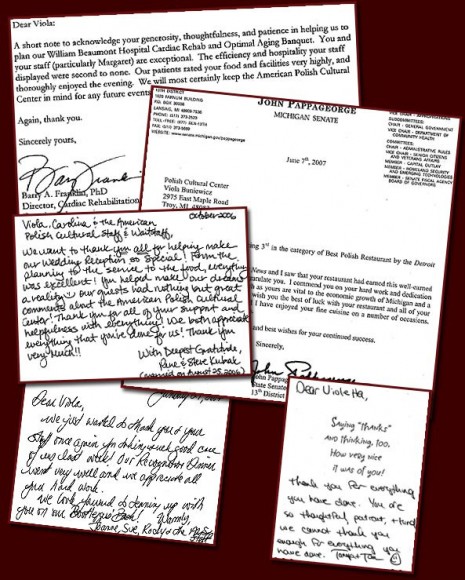 Dear Viola:
A short note to acknowledge your generosity, thoughtfulness, and patience in helping us to
plan our William Beaumont Hospital Cardiac Rehab and Optimal Aging Banquet. You and
your staff (particularly Margaret) are exceptional. The efficiency and hospitality your staff
displayed were second to none. Our patients rated your food and facilities very highly, and
thoroughly enjoyed the evening. We will most certainly keep the American Polish Cultural
Center in mind for any future events
Again, thank you.
Sincerely yours,
Barry A. Franklin, PhD
Director, Cardiac Rehabilitation
13TH DISTRICT
1020 FARNUM BUILDING
P.O. BOX 30036
LANSING, MI 48909-7536
PHONE: (517) 373-2523
FAX: (517) 373-5669
JOHN PAPPAGEORGE
MICHIGAN SENATE
COMMITTEES:
SUBCOMMITTEES:
CHAIR - GENERAL GOVERNMENT
VICE CHAIR - DEPARTMENT OF
COMMUNITY HEALTH
June 7th, 2007
Polish Cultural Center
Viola Baniewicz
2975 East Maple Road
Troy, MI
ing 3rd in the category of Best Polish Restaurant by the Detroit
News and I saw that your restaurant had earned this well-earned
I commend you on your hard work and dedication
as yours are vital to the economic growth of Michigan and a
wish you the best of luck with your restaurant and all of your
I have enjoyed your fine cuisine on a number of occasions.
and best wishes for your continued success.
John Pappa
State Senato
13th District
October 2006
Viola, Carolina, & the American
Polish Cultural Staff & Waitstaff,
We want to thank you all for helping make
our Wedding Reception so Special! From the
planning to the service to the food, everything
was excellent! You helped make our dreams
a reality! Our guests had nothing but great
comments about the American Polish Cultural
Center! Thank you for all of your support and
helpfulness with everything! We both appreciate
everything that you've done for us! Thank you
very much!!
With Deepest Gratitude,
& Steve Kubiak
(married on August 25, 2006)
Dear Viola,
We just wanted to thank you & your
staff once again for taking such good care
of us last week! Our Recognition Dinner
went very well and we appreciate all
your hard work.
We look forward to teaming up with
you on our
Warmly,
Sue,
Dear Violetta,
Saying "thanks"
and thinking, too,
How very nice
it was of you!
thank you for everything
you have done. You are
so thoughtful, patient, & kind
we cannot thank you
enough for everything you
have done.